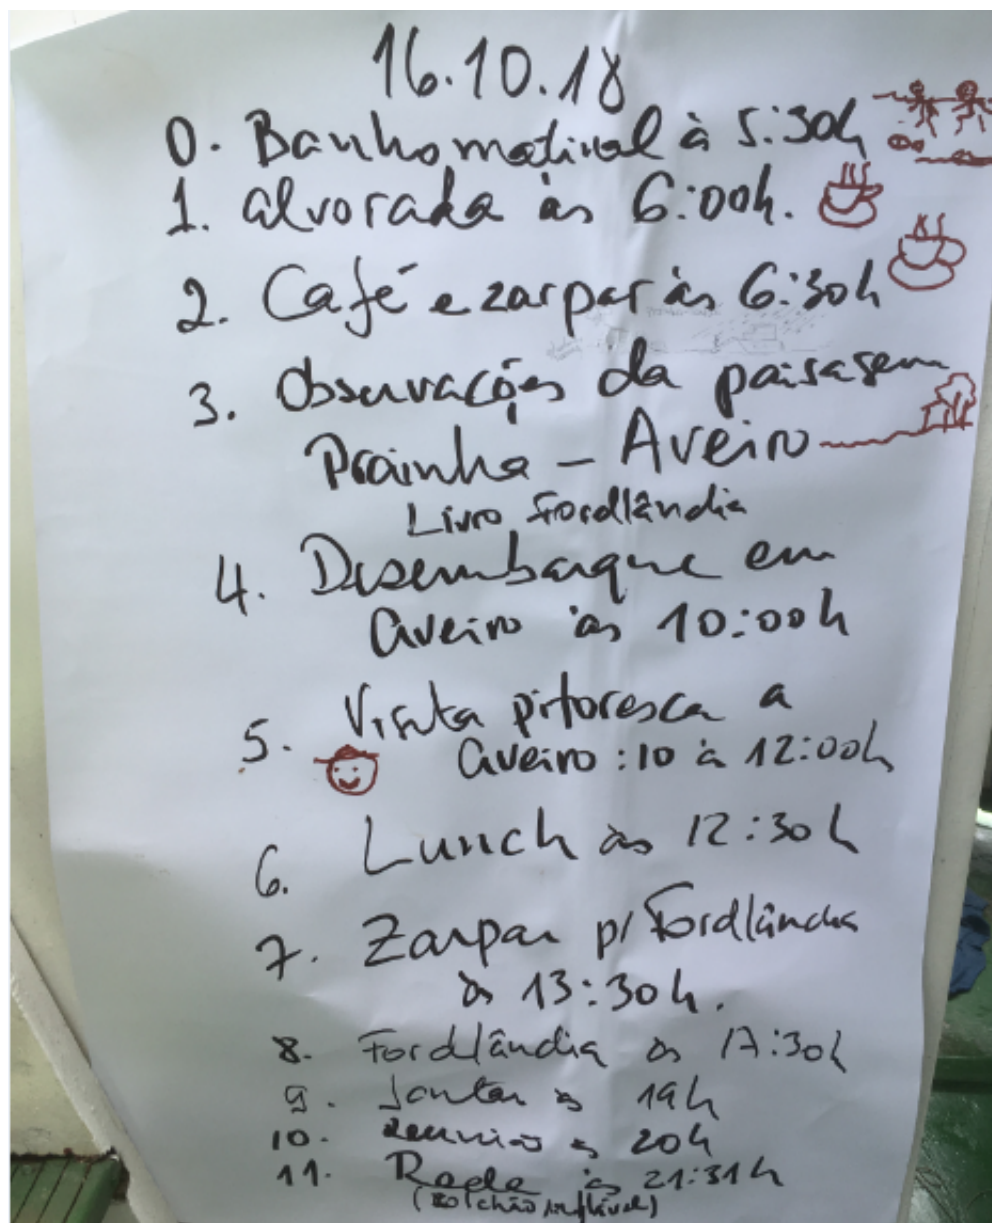 16.10.18
0. Banho matinal à 5:30h
1. alvorada às 6:00h.
2. Café e zarpar às 6:30h
3. Observações da paisagem
Prainha – Aveiro
Livro Fordlândia
4. Desembarque em
Aveiro às 10:00h
5. Visita pitoresca a
Aveiro : 10 à 12:00h
6. Lunch às 12:30h
7. Zarpar p/ Fordlândia
às 13:30h.
8. Fordlândia às 17:30h
9. Jantar às 19h
10. Reunião às 20h
11. Rede às 21:31h
(colchão inflável)